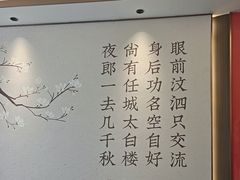 眼前汶泗只交流
身后功名空自好
尚有任城太白楼
夜郎一去几千秋